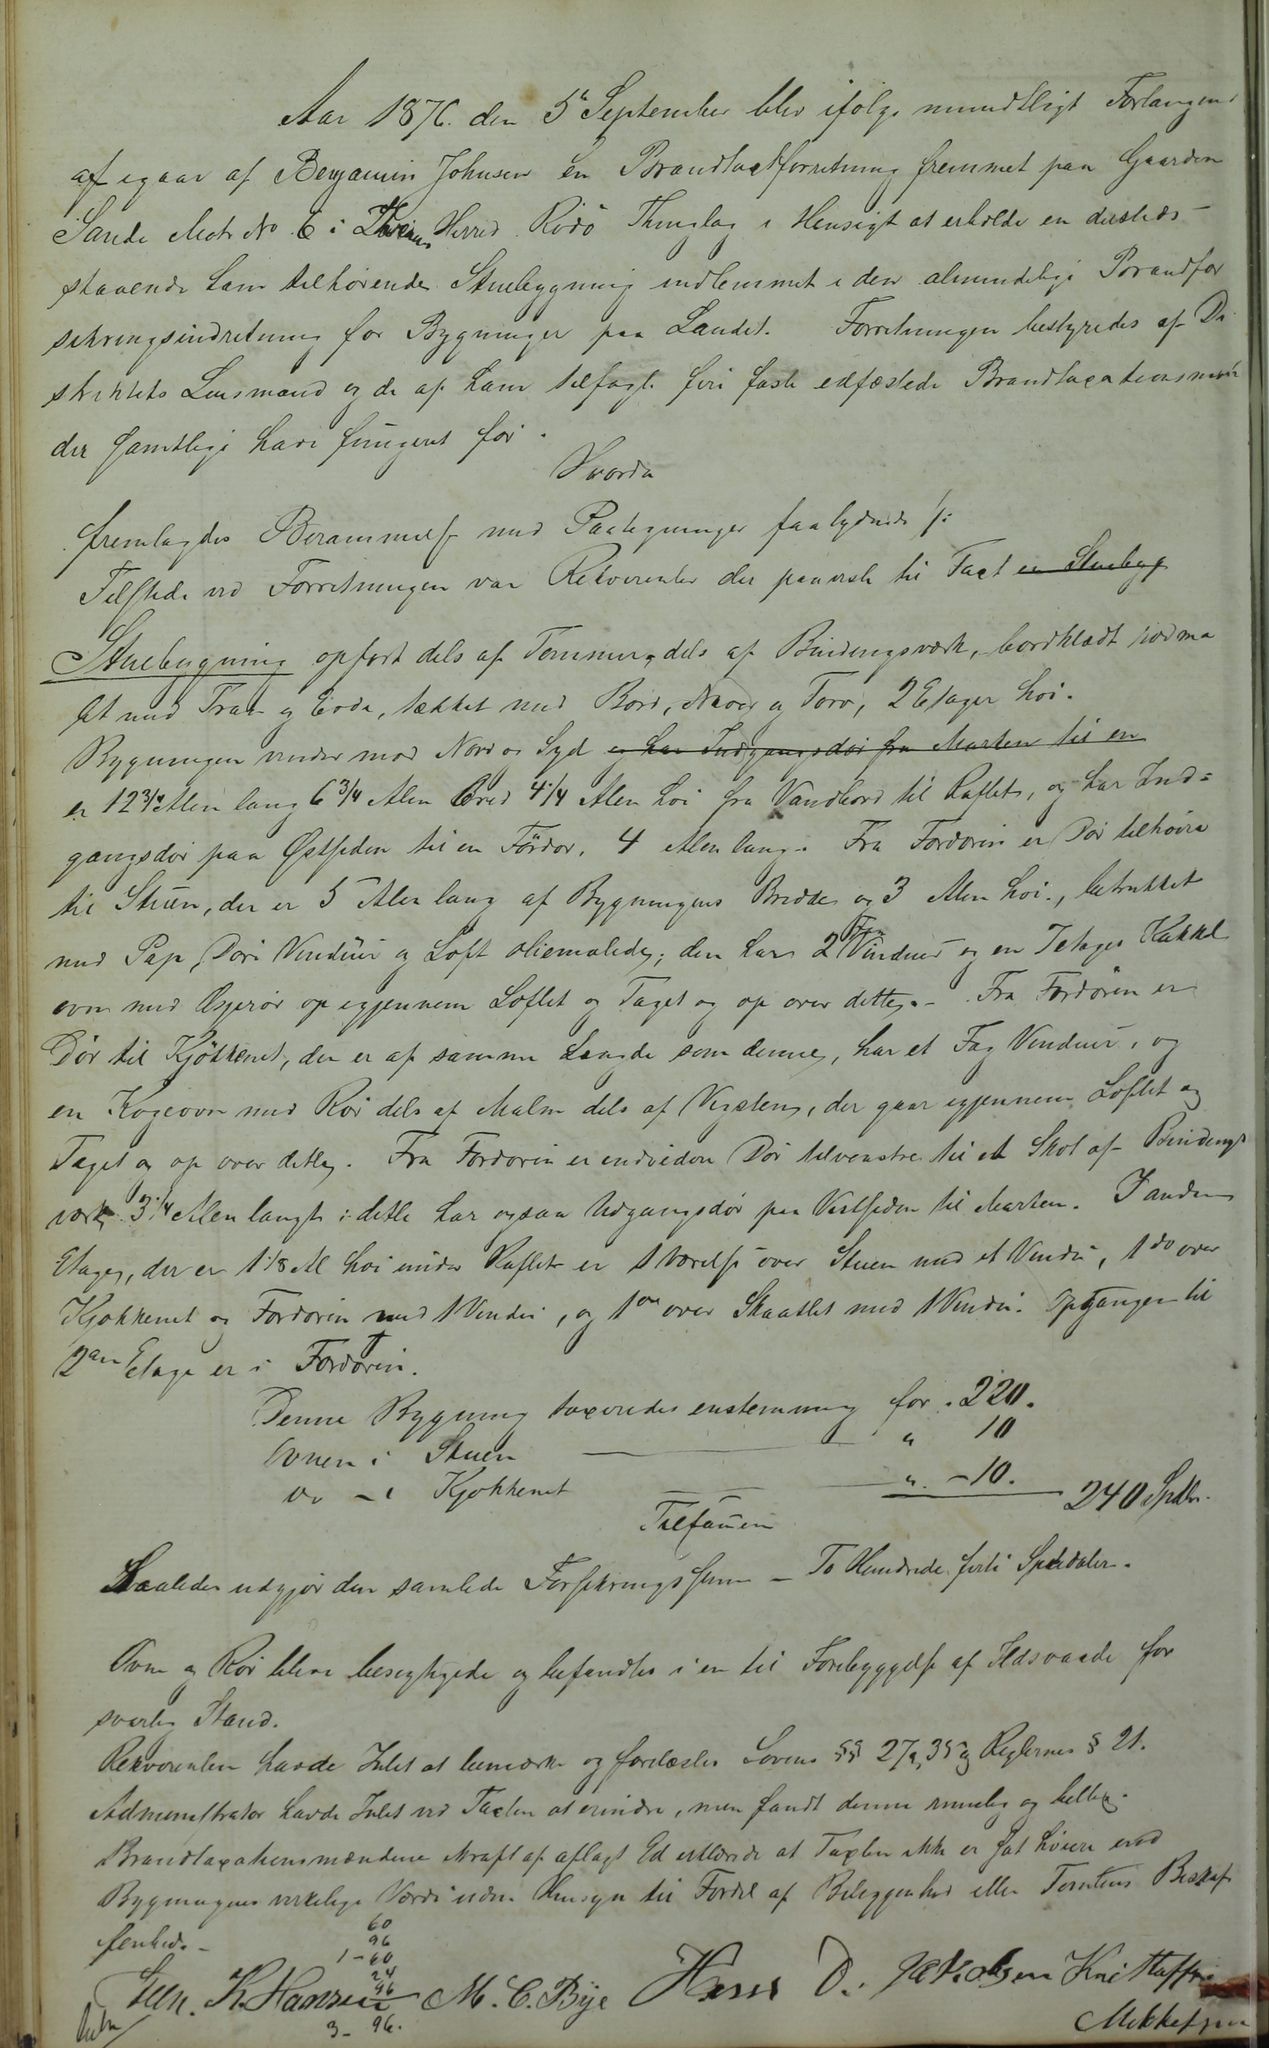 Aar 1876. den 5t September blev ifølge mundtligt Forlangend
af igaar af Benjamin Johnsen en Brandtaxtforretning fremmet paa Gaarden
Sande Matr No 6 i Herred Rödö Thinglag i Hensigt at erholde en dersteds
staaende ham tilhörende Stuebygning indlemmet i den almindelige Brandfor
sikringsindretning for Bygninger paa Landet. Forretningen bestyredes af Di-
striktets Lensmand og de af ham tilsagte fire faste edfæstede Brandtaxationsmæn
der samtlige have fungeret för.
Hvorda
fremlagdes Berammelse med Paategninger saalydende /:
Tilstede ved Forretningen var Rekvirenten der paaviste til Taxt en Stuebyg
Stuebygning opfört dels af Tömmer, dels af Bindingsværk, bordklædt rödma
let med Tran og Erde, tækket med Bord, Næver og Torv, 2 Etager höi.
Bygningen vender mod Nord og Syd og har Indgangsdör fra Marken til en
er 12 3/4 Alen lang 6 3/4 Alen bred 4 1/4 Alen höi fra Vandbord til Raftet, og har Ind=
gangsdör paa Östsiden til en Fördör, 4 Alen lang. Fra Fordören er Dör tilhöire
til Stuen, der er 5 Alen lang af Bygningens Bredde og 3 Alen höi, betrukket
med Pap, Döre Vinduer og Loft oliemalede; den har 2 Fag Vinduer og en Etages Kakkel
ovn med Rör op igjennem Loftet og Taget og op over dette. Fra Fordören er
Dör til Kjökkenet, der er af samme Længde som denne, har et Fag Vinduer, og
en Kogeovn med Rör dels af Malm dels af Vegsten, der gaar igjennem Loftet og
Taget og op over dette. Fra Fordören er endvidere Dör tilvenstre til et Skot af Bindings
værk 3 1/4 Alen langt; dette har ogsaa Udgangsdör paa Vestsiden til Marken. I anden
Etage, der er 1 1/8 Al höi under Raftet er 1 Værelse over Stuen med et Vindu, 1 do over
Kjökkenet og Fordören med 1 Vindu, og 1 over Skaattet med 1 Vindu. Opgangen til
2den Etage er i Fordören.
Denne Bygning taxeredes enstemmig for . 220.
Ovnen i Stuen " 10
do - i Kjökkenet " - 10.
Tilsammen 240 Spdlr.
Saaledes udgjör den samlede Forsikringssum - To Hundrede förti Speciedaler.
Ovn og Rör bleve besigtigede og befandtes i en til Forebyggelse af Ildsvaade for
svarlig Stand.
Rekvirenten havde Intet at bemærke og forelæstes Lovens §§ 27, 35 og Reglernes § 21.
Administrator havde Intet ved Taxten at erindre, men fandt denne rimelig og billig.
Brandtaxationsmændene ikraft af aflagt Ed erklærede at Taxten ikke er sat höiere end
Bygningens virkelige Værdi uden Hensyn til Fordel af Beliggenhed eller Tomtens Beskaf
fenhed. -
60
96
1 - 60
24
96
3 - 96.
K. Hansen M. C. Bye Hans D. Jakobsen